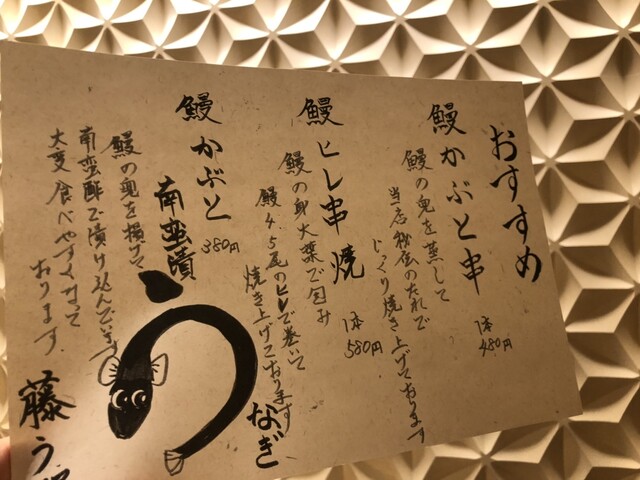 おすすめ
鰻かぶと串
1本
480円
鰻の兜を蒸して
当店秘伝のたれで
じっくり焼き上げております
鰻ヒレ串焼
1本
580円
鰻の身大葉で包み
鰻4.5尾のヒレで巻いて
焼き上げております
鰻かぶと
南蛮漬
380円
鰻の兜を揚げて
南蛮酢で漬け込んでいます
大変食べやすくなって
おります。
うなぎ
藤う